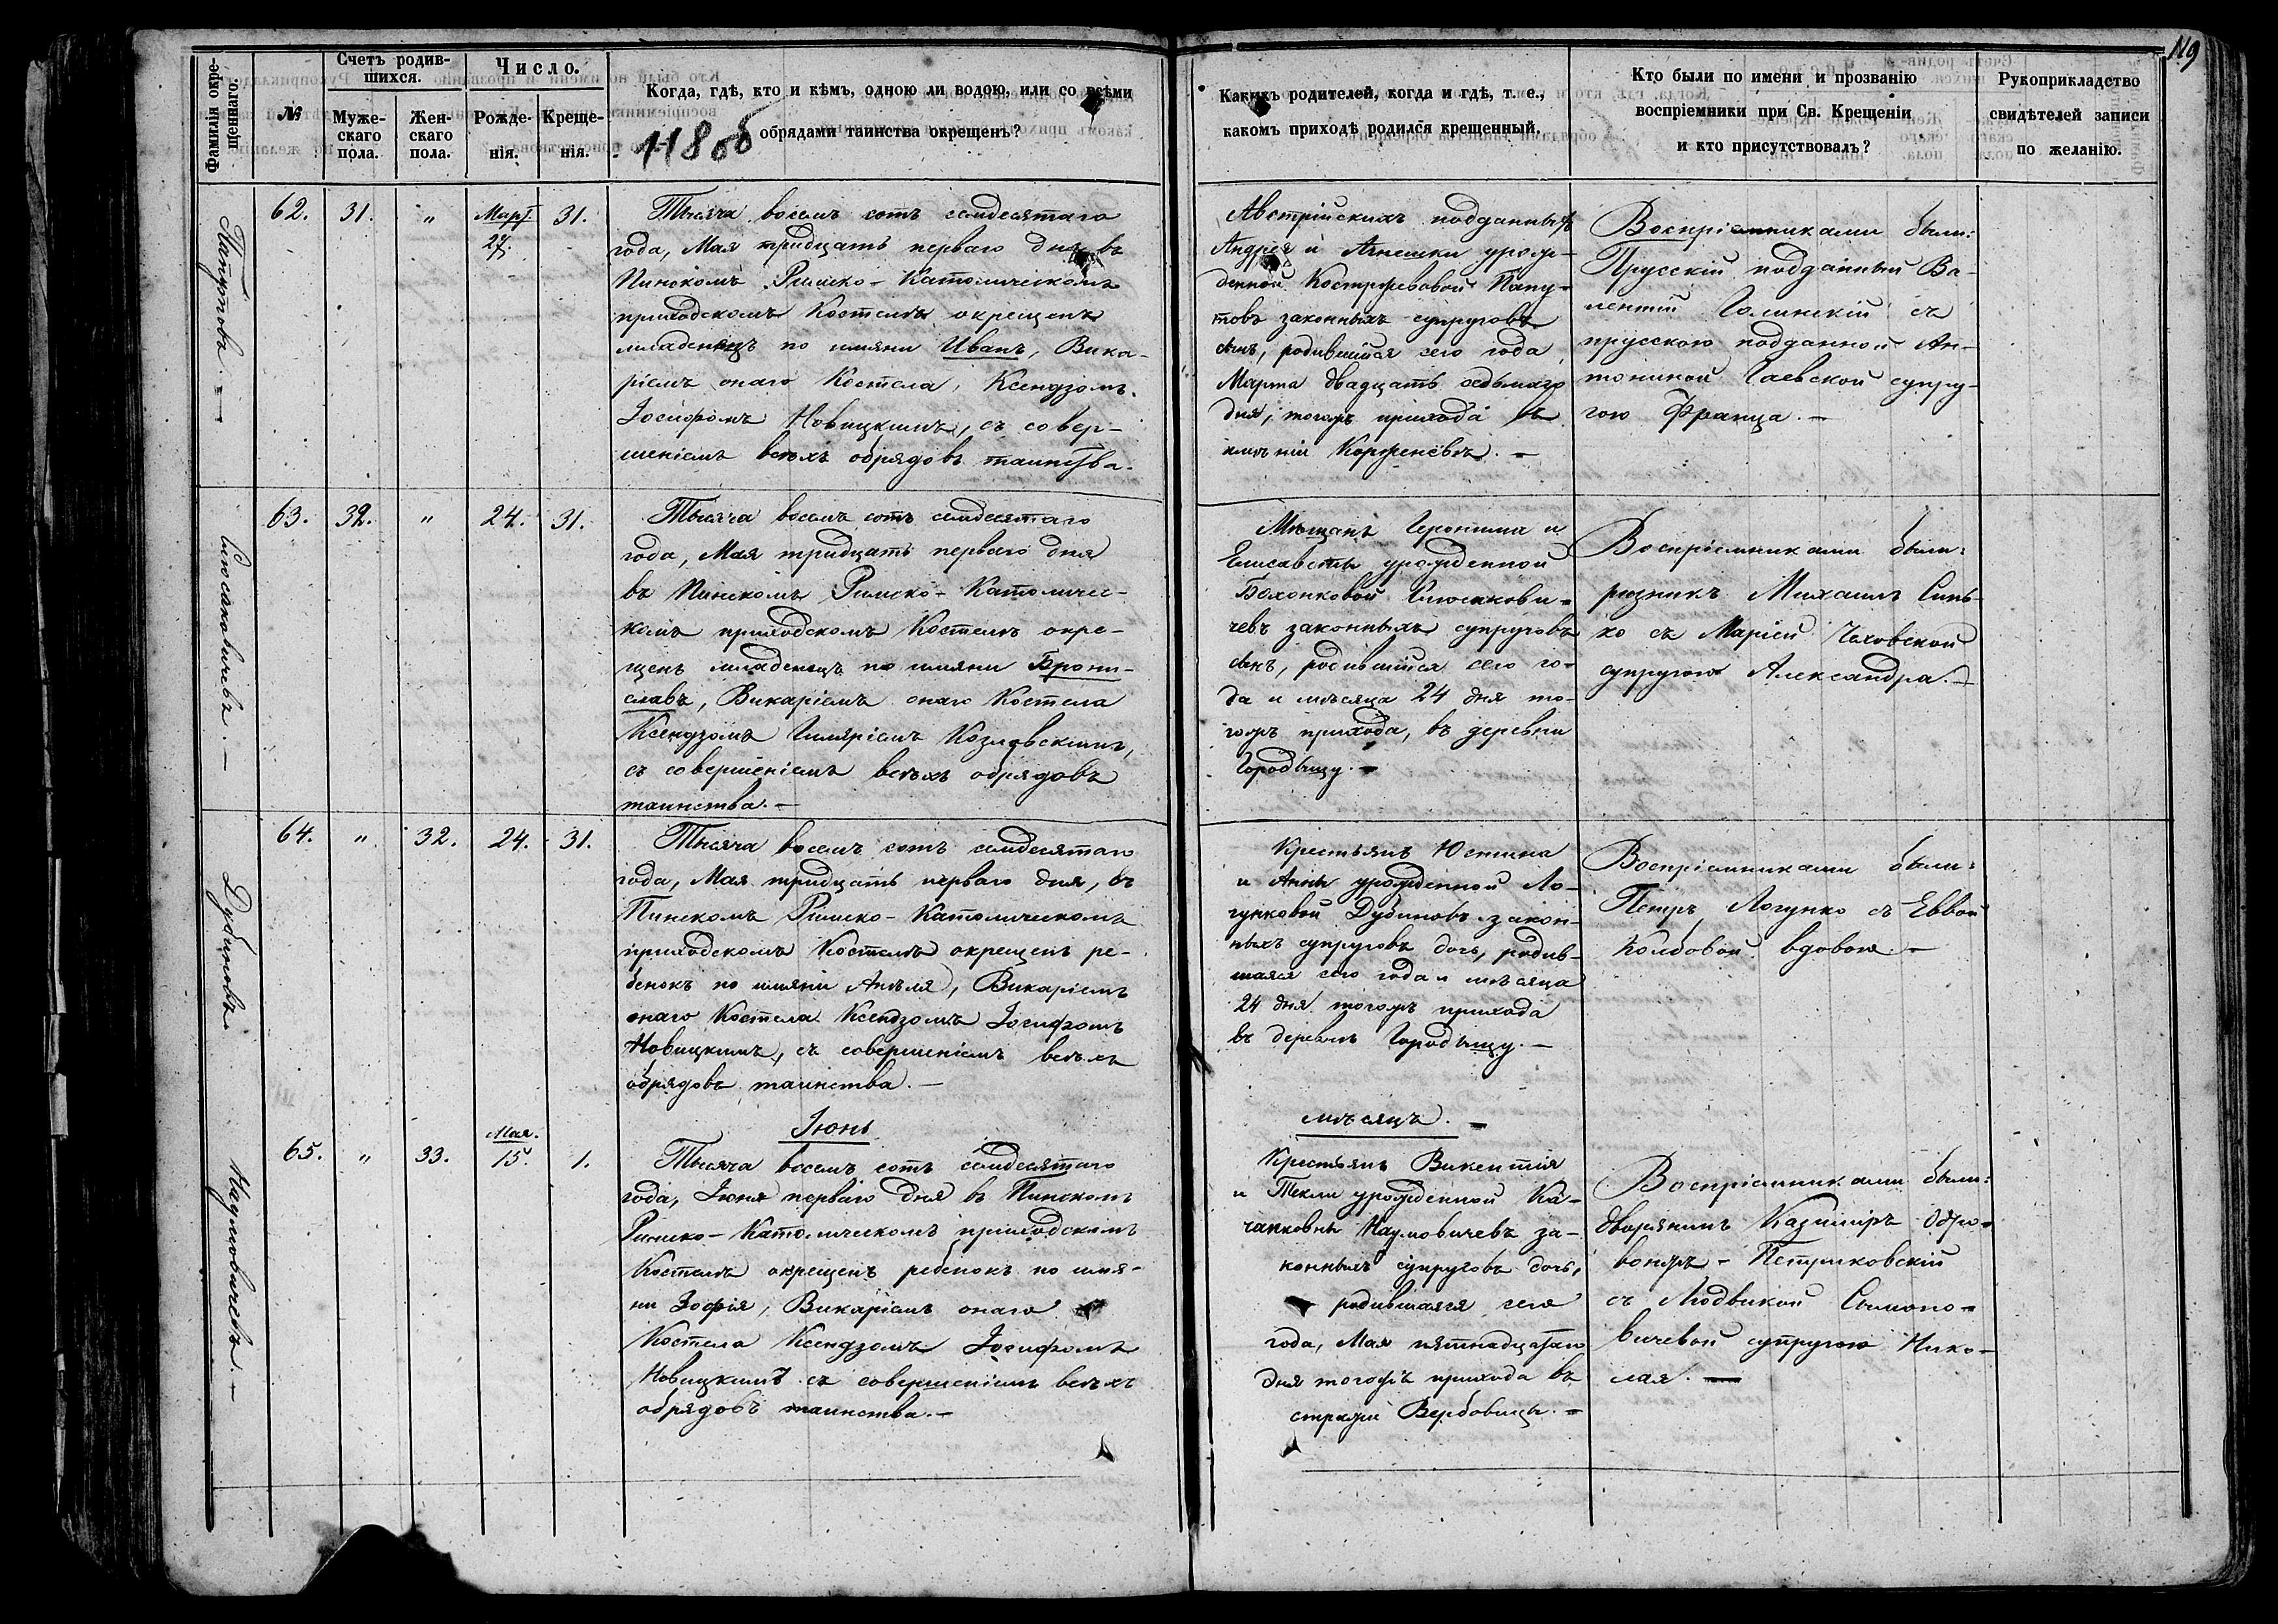 119
Фамилія окре-
щеннаго.
№
Счетъ родив-
шихся.
Муже-
скаго
пола.
Жен-
скаго
пола.
Число.
Рожде-
нія.
Креще-
нія.
Когда, гдѣ, кто и кѣмъ, одною ли водою, или со всѣми
обрядами таинства окрещенъ?
Какихъ родителей, когда и гдѣ, т. е.,
какомъ приходѣ родился крещенный.
Кто были по имени и прозванію
воспріемники при Св. Крещеніи
и кто присутствовалъ?
Рукоприкладство
свидѣтелей записи
по желанію.
62.
31.
"
Март.
27.
31.
Тысяча восемь сотъ семдесятаго
года, Мая тридцать перваго дня въ
Пинскомъ Римско-Католическомъ
приходскомъ Костелѣ окрещенъ
младенецъ по имяни Иванъ, Вика-
ріемъ онаго Костела, Ксендзомъ
Іосифомъ Новицкимъ, съ совер-
шеніемъ всѣхъ обрядовъ таинства.
Австрійскихъ подданныхъ
Андрея и Агнешки урож-
денной Костржевовой Папу-
товъ законныхъ супруговъ
сынъ, родившійся сего года
Марта двадцать седьмаго
дня, тогожъ прихода въ
имѣніи Корженевѣ. —
Воспріемниками были:
Прусскій подданный Ва-
лентій Голинскій съ
прусскою подданной Ан-
тониной Гаевской супру-
гою Франца. —
63.
32.
"
24.
31.
Слюсаковичевъ. —
Тысяча восемь сотъ семдесятаго
года, Мая тридцать перваго дня
въ Пинскомъ Римско-Католичес-
комъ приходскомъ Костелѣ окре-
щенъ младенецъ по имяни Брони-
славъ, Викаріемъ онаго Костела
Ксендзомъ Гиляріемъ Козловскимъ,
съ совершеніемъ всѣхъ обрядовъ
таинства. —
Мѣщанъ Іеронима и
Елисаветы урожденной
Бохонковой Слюсакови-
чевъ законныхъ супруговъ
сынъ, родившійся сего го-
да и мѣсяца 24 дня то-
гожъ прихода, въ деревни
Городыщу. —
Воспріемниками были:
Михаилъ Синь-
ко съ Маріей Чеховской
супругою Александра. —
64.
"
32.
24.
31.
Дубиновъ
Тысяча восемь сотъ семдесятаго
года, Мая тридцать перваго дня, въ
Пинскомъ Римско-Католическомъ
приходскомъ Костелѣ окрещенъ ре-
бенокъ по имяни Анѣля, Викаріемъ
онаго Костела Ксендзомъ Іосифомъ
Новицкимъ, съ совершеніемъ всѣхъ
обрядовъ таинства. —
Крестьянъ Юстина
и Анны урожденной Ло-
гунковой Дубиновъ закон-
ныхъ супруговъ дочь, родив-
шаяся сего года и мѣсяца
24 дня тогожъ прихода
въ деревнѣ Городыщу. —
Воспріемниками были:
Петръ Логунко съ Еввой
Колбовой вдовою. —
Іюнь
мѣсяцъ. —
65.
"
33.
Мая.
15.
1.
Наумовичевъ. —
Тысяча восемь сотъ семдесятаго
года, Іюня перваго дня въ Пинскомъ
Римско-Католическомъ приходскомъ
Костелѣ окрещенъ ребенокъ по имя-
ни Зофія, Викаріемъ онаго
Костела Ксендзомъ Іосифомъ
Новицкимъ съ совершеніемъ всѣхъ
обрядовъ таинства. —
Крестьянъ Викентія
и Текли урожденной Ка-
чанковны Наумовичевъ за-
конныхъ супруговъ дочь,
родившаяся сего
года, Мая пятнадцатаго
дня тогожъ прихода въ
стражи Вербовицы. —
Воспріемниками были:
дворянинъ Казиміръ Одро-
вонжъ-Петриковскій
съ Людвикой Симоно-
вичевой супругою Нико-
лая. —